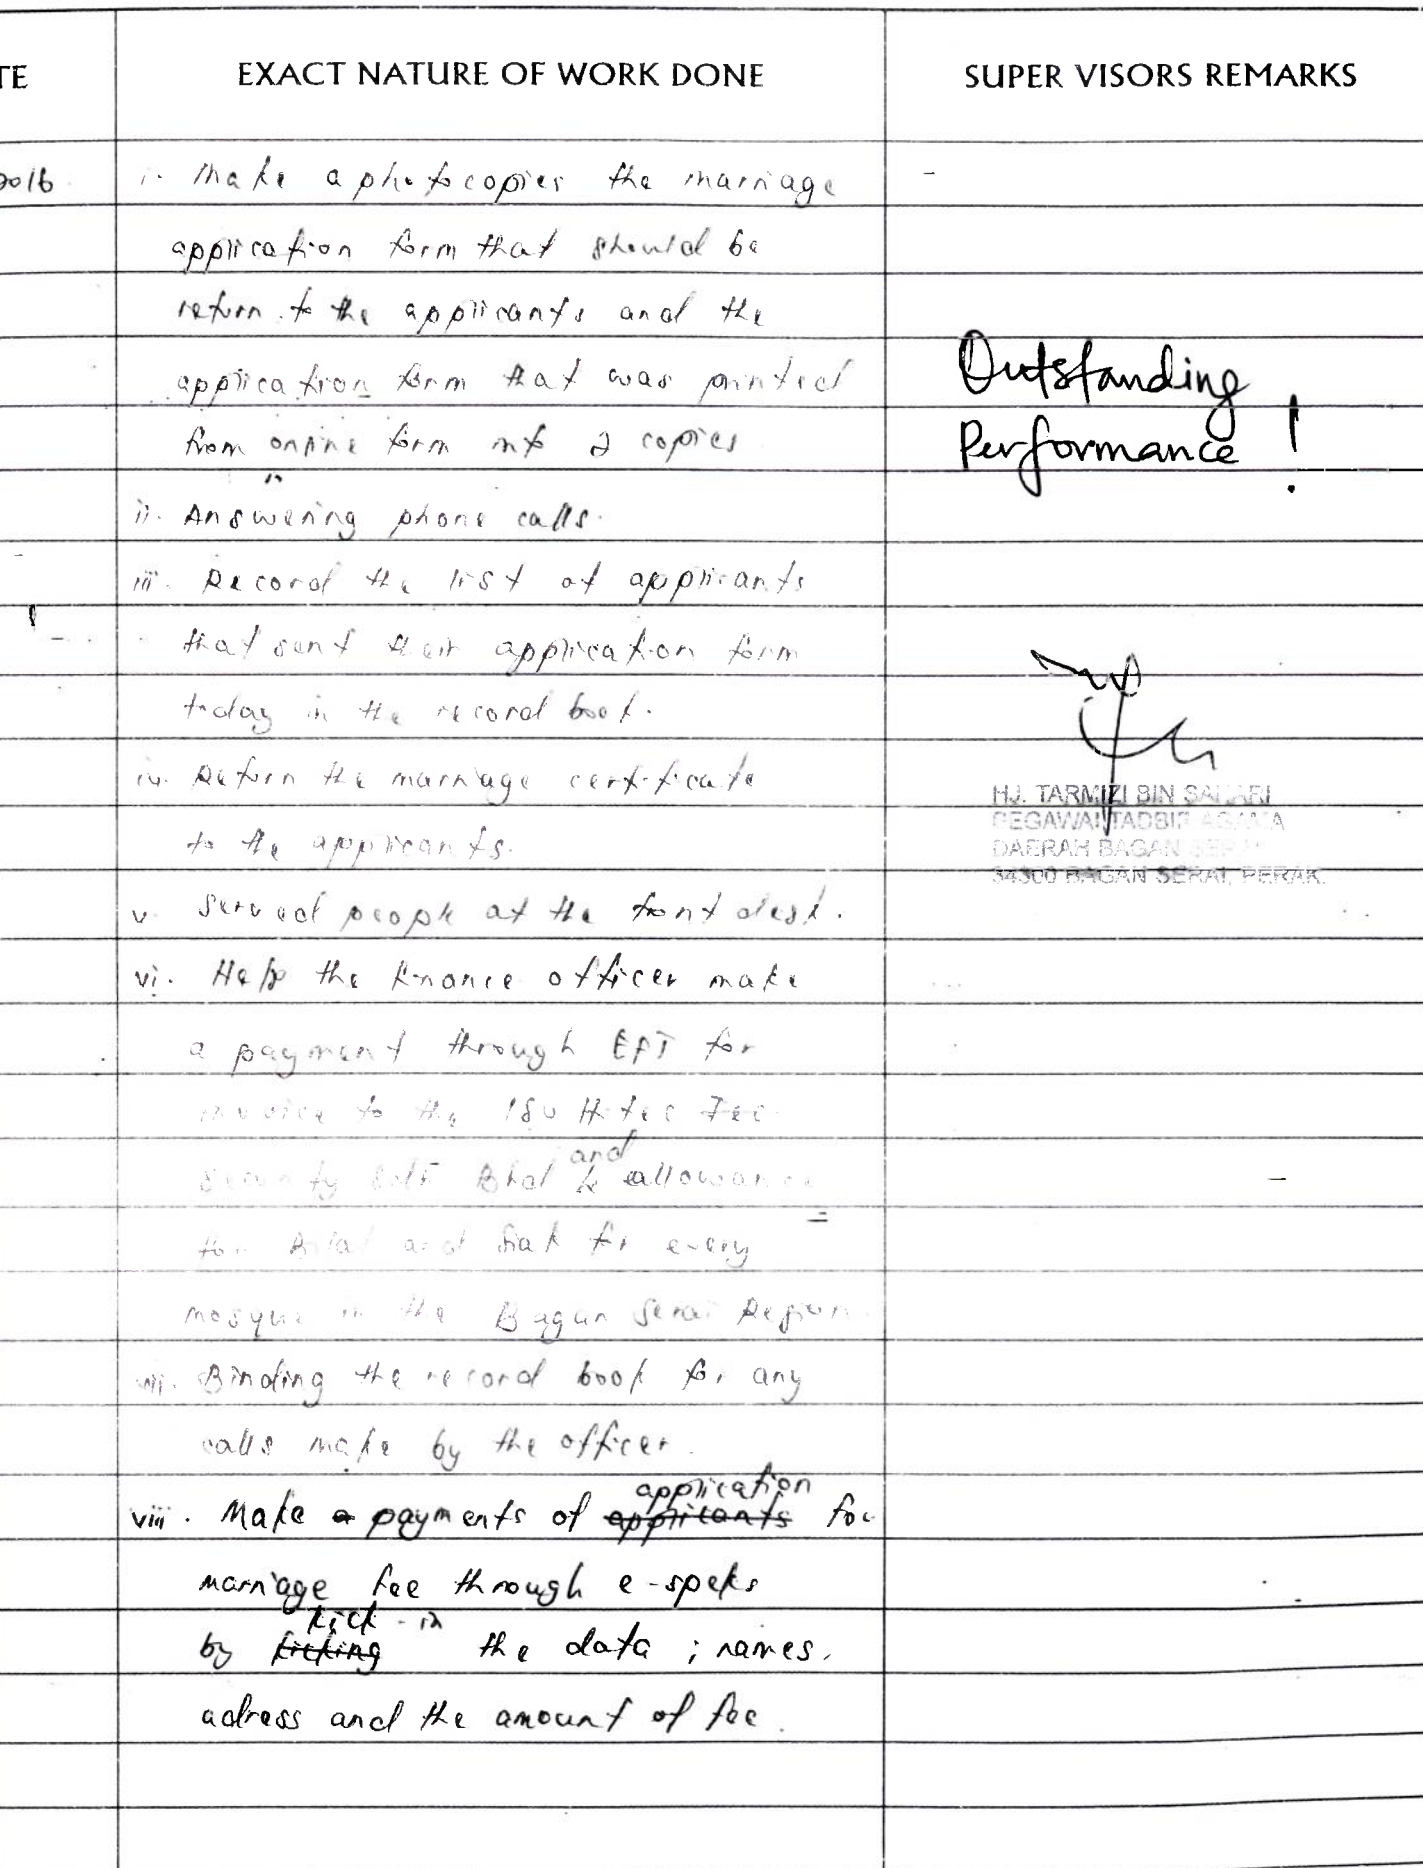 TE
EXACT NATURE OF WORK DONE
SUPER VISORS REMARKS
2016
i. Make a photocopies the marriage
application form that should be
return to the applicants and the
application form that was printed
from online form into 2 copies
ii. Answering phone calls.
iii. Record the list of applicants
that sent their application form
today in the record book.
iv. Return the marriage certificate
to the applicants.
v. Served people at the front desk.
vi. Help the finance officer make
a payment through EFT for
invoice to the
security Bilal and allowance
for Bilal and Siak for every
mosque in the Bagan Serai Region
vii. Binding the record book for any
calls make by the officer.
viii. Make a payments of applicants application for
marriage fee through e-speks
by kicking kick-in the data ; names,
adress and the amount of fee.
Outstanding
Performance !
HJ. TARMIZI BIN SAHARI
PEGAWAI TADBIR AGAMA
DAERAH BAGAN SERAI
34300 BAGAN SERAI, PERAK.